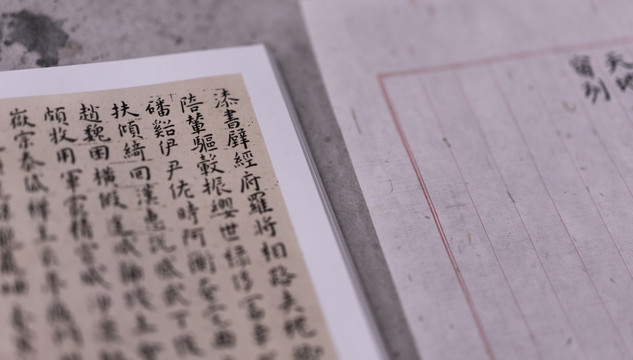 天地
宿列
漆書壁經府羅將相路夾槐
陪輦驅轂振纓世祿侈富車
磻谿伊尹佐時阿衡奄宅曲
扶傾綺回漢惠說感武丁俊
趙魏困橫假途滅虢踐土會
頗牧用軍最精宣威沙漠
嶽宗泰岱禪主云亭